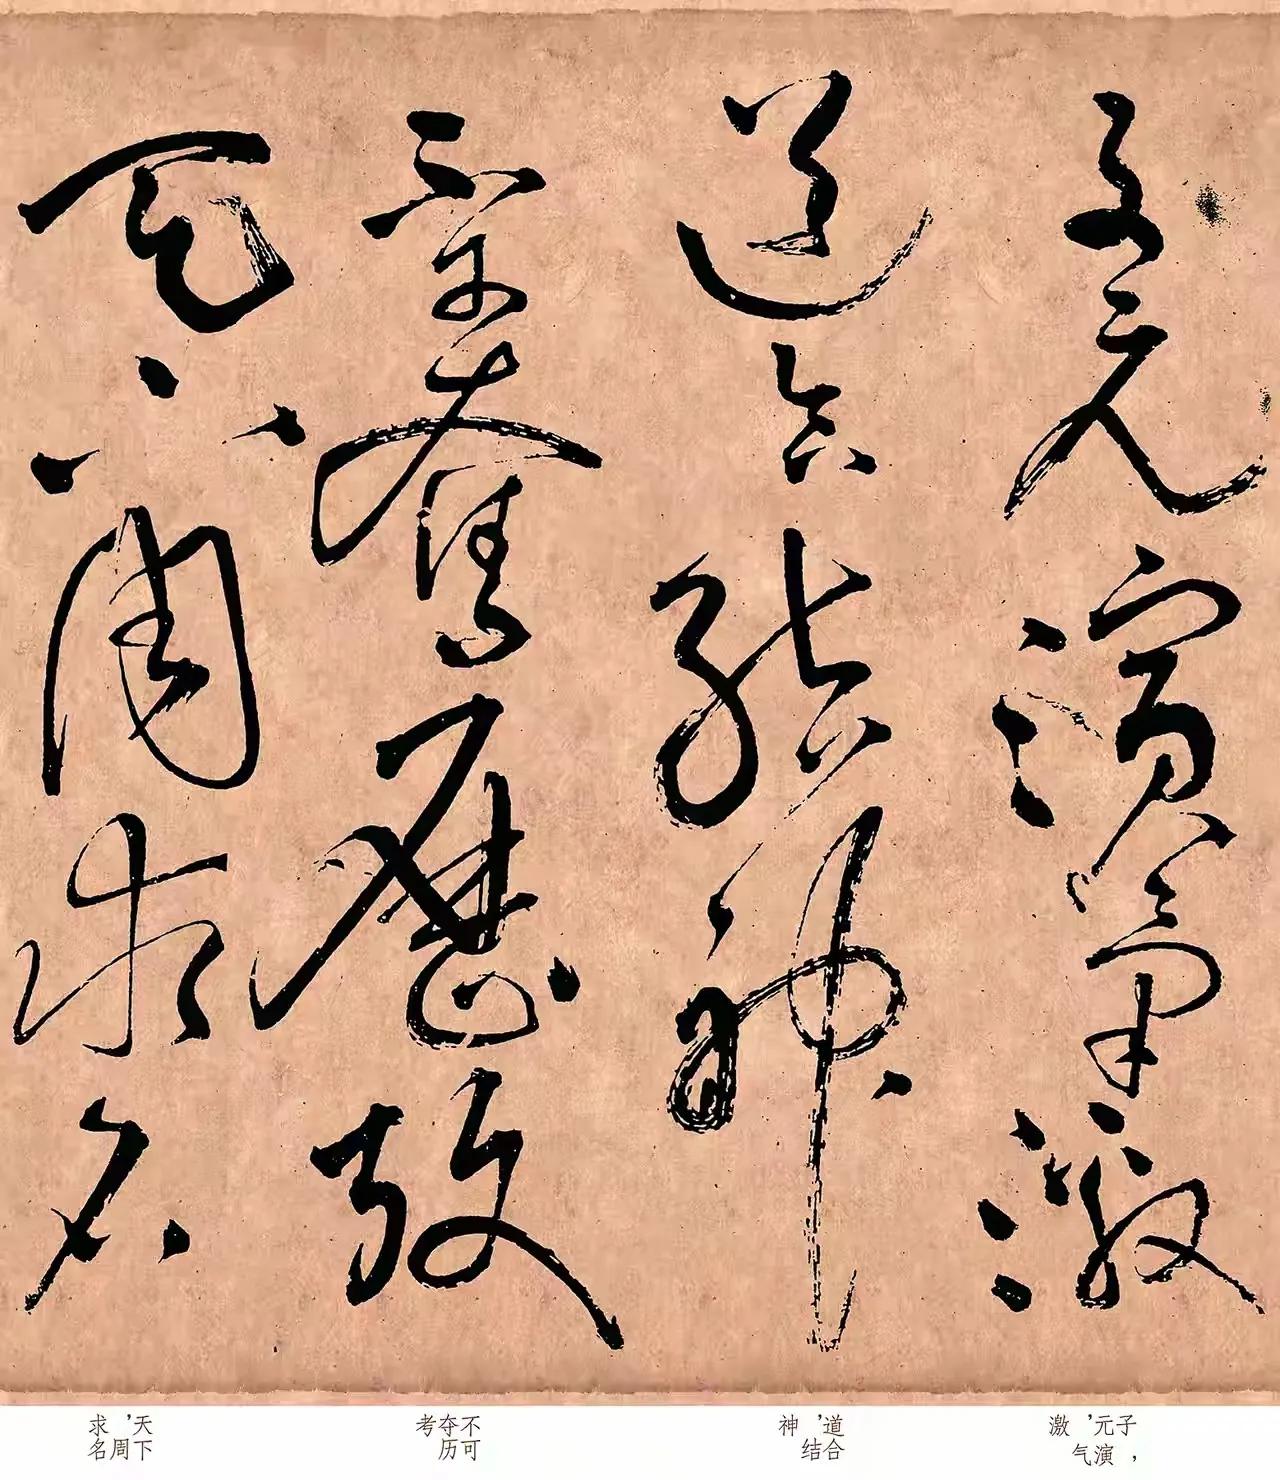 子元演氣激
道合結神
不可奪歷攷
天下周求名
子，元演，气激
道合，结神
不可夺历考
天下，周求名